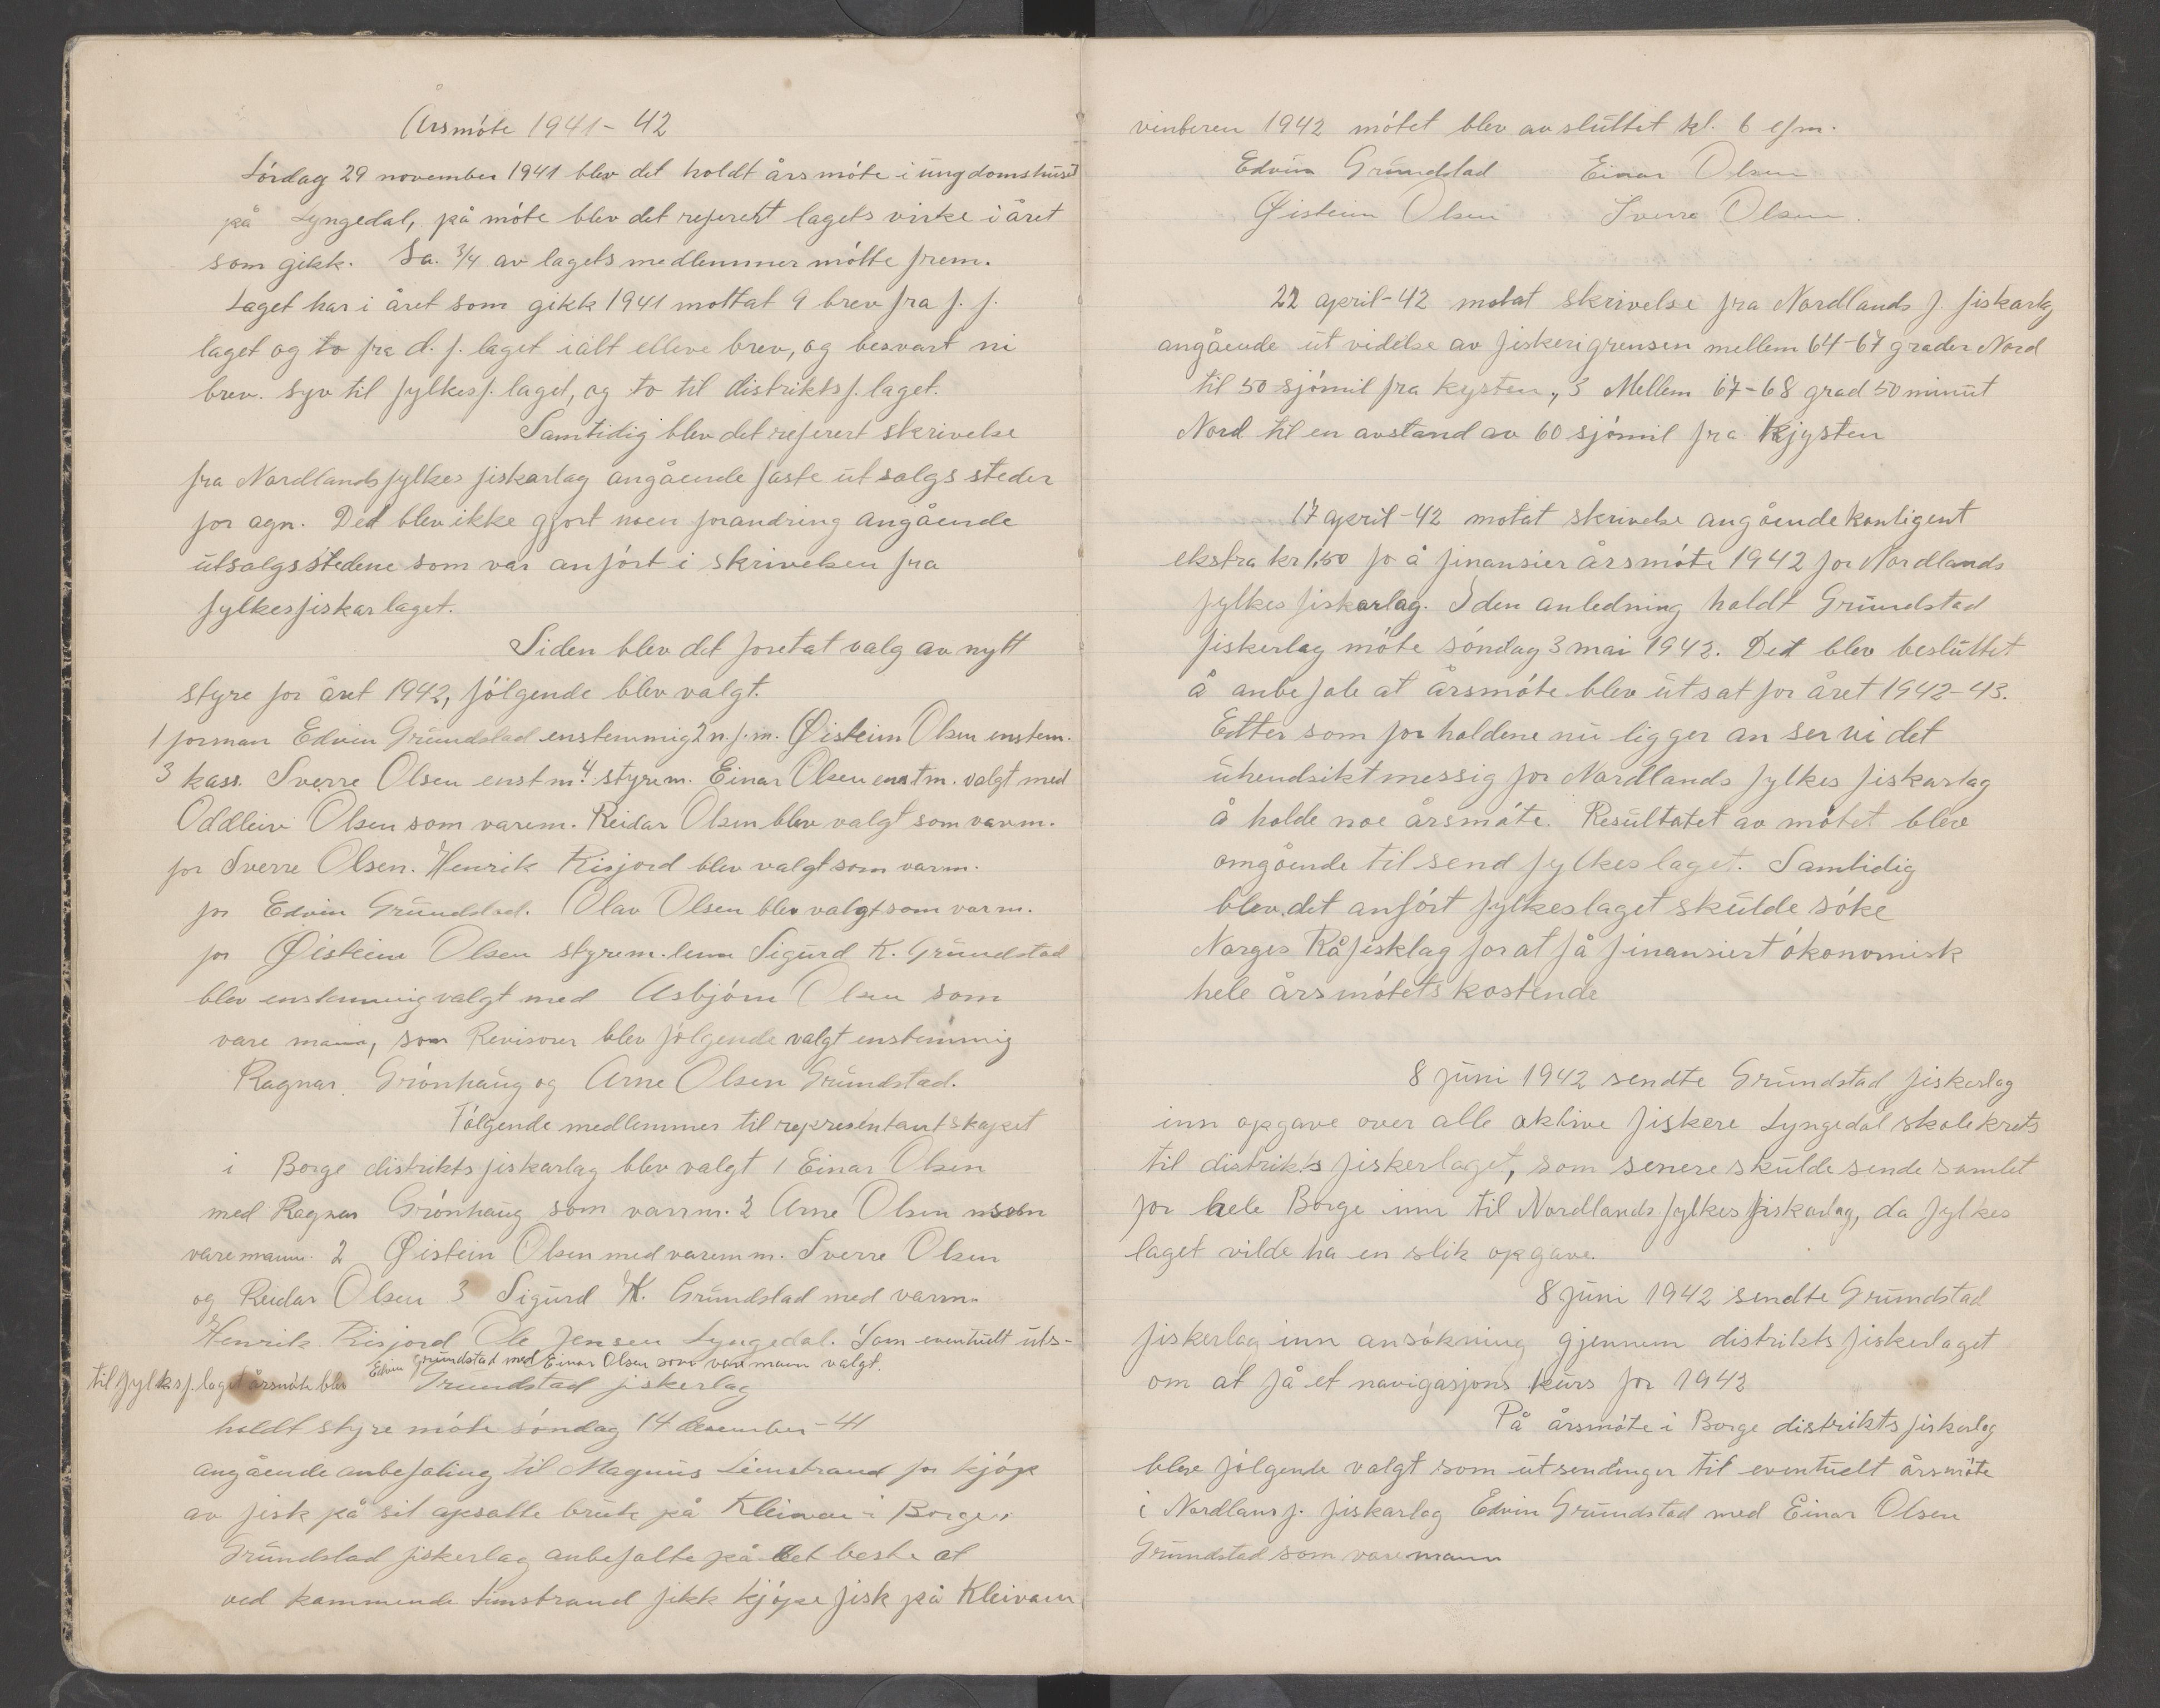 Årsmöte 1941-42
Lördag 29 november 1941 blev det holdt årsmöte i ungdomshuset
på Lyngedal, på möte blev det referert lagets virke i året
som gikk. Sa. 3/4 av lagets medlemmer mötte frem.
Laget har i året som gikk 1941 mottat 9 brev fra f. f.
laget og to fra d. f. laget ialt elleve brev, og besvart ni
brev. syv til fylkesf. laget, og to til distriktsf. laget.
Samtidig blev det referert skrivelse
fra Nordlands fylkes fiskarlag angående faste utsalgs steder
for agn. Det blev ikke gjort noen forandring angående
utsalgsstedene som var anfört i skrivelsen fra
fylkesfiskarlaget.
Siden blev det foretat valg av nytt
styre for året 1942, fölgende blev valgt.
1 forman Edvin Grundstad enstemmig 2 n.f.m. Øistein Olsen enstem.
3 kass. Sverre Olsen enstm. 4 styrem. Einar Olsen enstm. valgt med
Oddleiv Olsen som varem. Reidar Olsen blev valgt som varm.
for Sverre Olsen. Henrik Risjord blev valgt som varm.
for Edvin Grundstad. Olav Olsen blev valgt som varm.
for Øistein Olsen styrem.lem Sigurd K. Grundstad
blev enstemmig valgt med Asbjörn Olsen som
vare mann, som Revisorer blev fölgende valgt enstemmig
Ragnar Grönhaug og Arne Olsen Grundstad.
Fölgende medlemmer til representantskapet
i Borge distrikts fiskarlag blev valgt 1 Einar Olsen
med Ragnar Grönhaug som varm. 2 Arne Olsen
varemann. 2 Øistein Olsen med varemm. Sverre Olsen
og Reidar Olsen 3 Sigurd K. Grundstad med varm.
Henrik Risjord Ole Jensen Lyngedal. Som eventuelt uts-
til fylksf. laget årsmöte blev Edvin Grundstad med Einar Olsen som vare mann valgt.
Grundstad fiskerlag
holdt styre möte söndag 14 desember-41
angående anbefaling til Magnus Limstrand for kjöp
av fisk på sit opsatte bruk på Kleivan i Borge.
Grundstad fiskerlag anbefalte på det beste at
ved kommende Limstrand fikk kjöpe fisk på Kleivan
vinteren 1942 mötet blev avsluttet kl. 6 e/m.
Edvin Grundstad Einar Olsen
Øistein Olsen Sverre Olsen.
22 april-42 motat skrivelse fra Nordlands f. fiskarlag
angående utvidelse av fiskerigrensen mellem 64-67 grader Nord
til 50 sjömil fra kysten., 3 Mellem 67-68 grad 50 minut
Nord til en avstand av 60 sjömil fra Kjysten
17 april-42 motat skrivelse angående kontigent
ekstra kr 1,50 fo å finansier årsmöte 1942 for Nordlands
fylkes fiskarlag. I den anledning holdt Grundstad
fiskerlag möte söndag 3 mai 1942. Det blev besluttet
å anbefale at årsmöte blev utsat for året 1942-43.
Etter som forholdene nu ligger an ser vi det
uhendsiktmessig for Nordlands fylkes fiskarlag
å holde noe årsmöte. Resultatet av mötet blev
omgående tilsend fylkeslaget. Samtidig
blev det anfört fylkeslaget skulde söke
Norges Råfisklag for at få finansiert ökonomisk
hele årsmötets kostende
8 juni 1942 sendte Grundstad fiskerlag
inn opgave over alle aktive fiskere Lyngedal skolekrets
til distrikts fiskerlaget, som senere skulde sende samlet
for hele Borge inn til Nordlands fylkes fiskarlag, da fylkes
laget vilde ha en slik opgave.
8 juni 1942 sendte Grundstad
fiskerlag inn ansökning gjennem distrikts fiskerlaget
om at få et navigasjons kurs for 1942
På årsmöte i Borge distrikts fiskarlag
blev fölgende valgt som utsendinger til eventuelt årsmöte
i Nordlans f. fiskarlag Edvin Grundstad med Einar Olsen
Grundstad som varemann